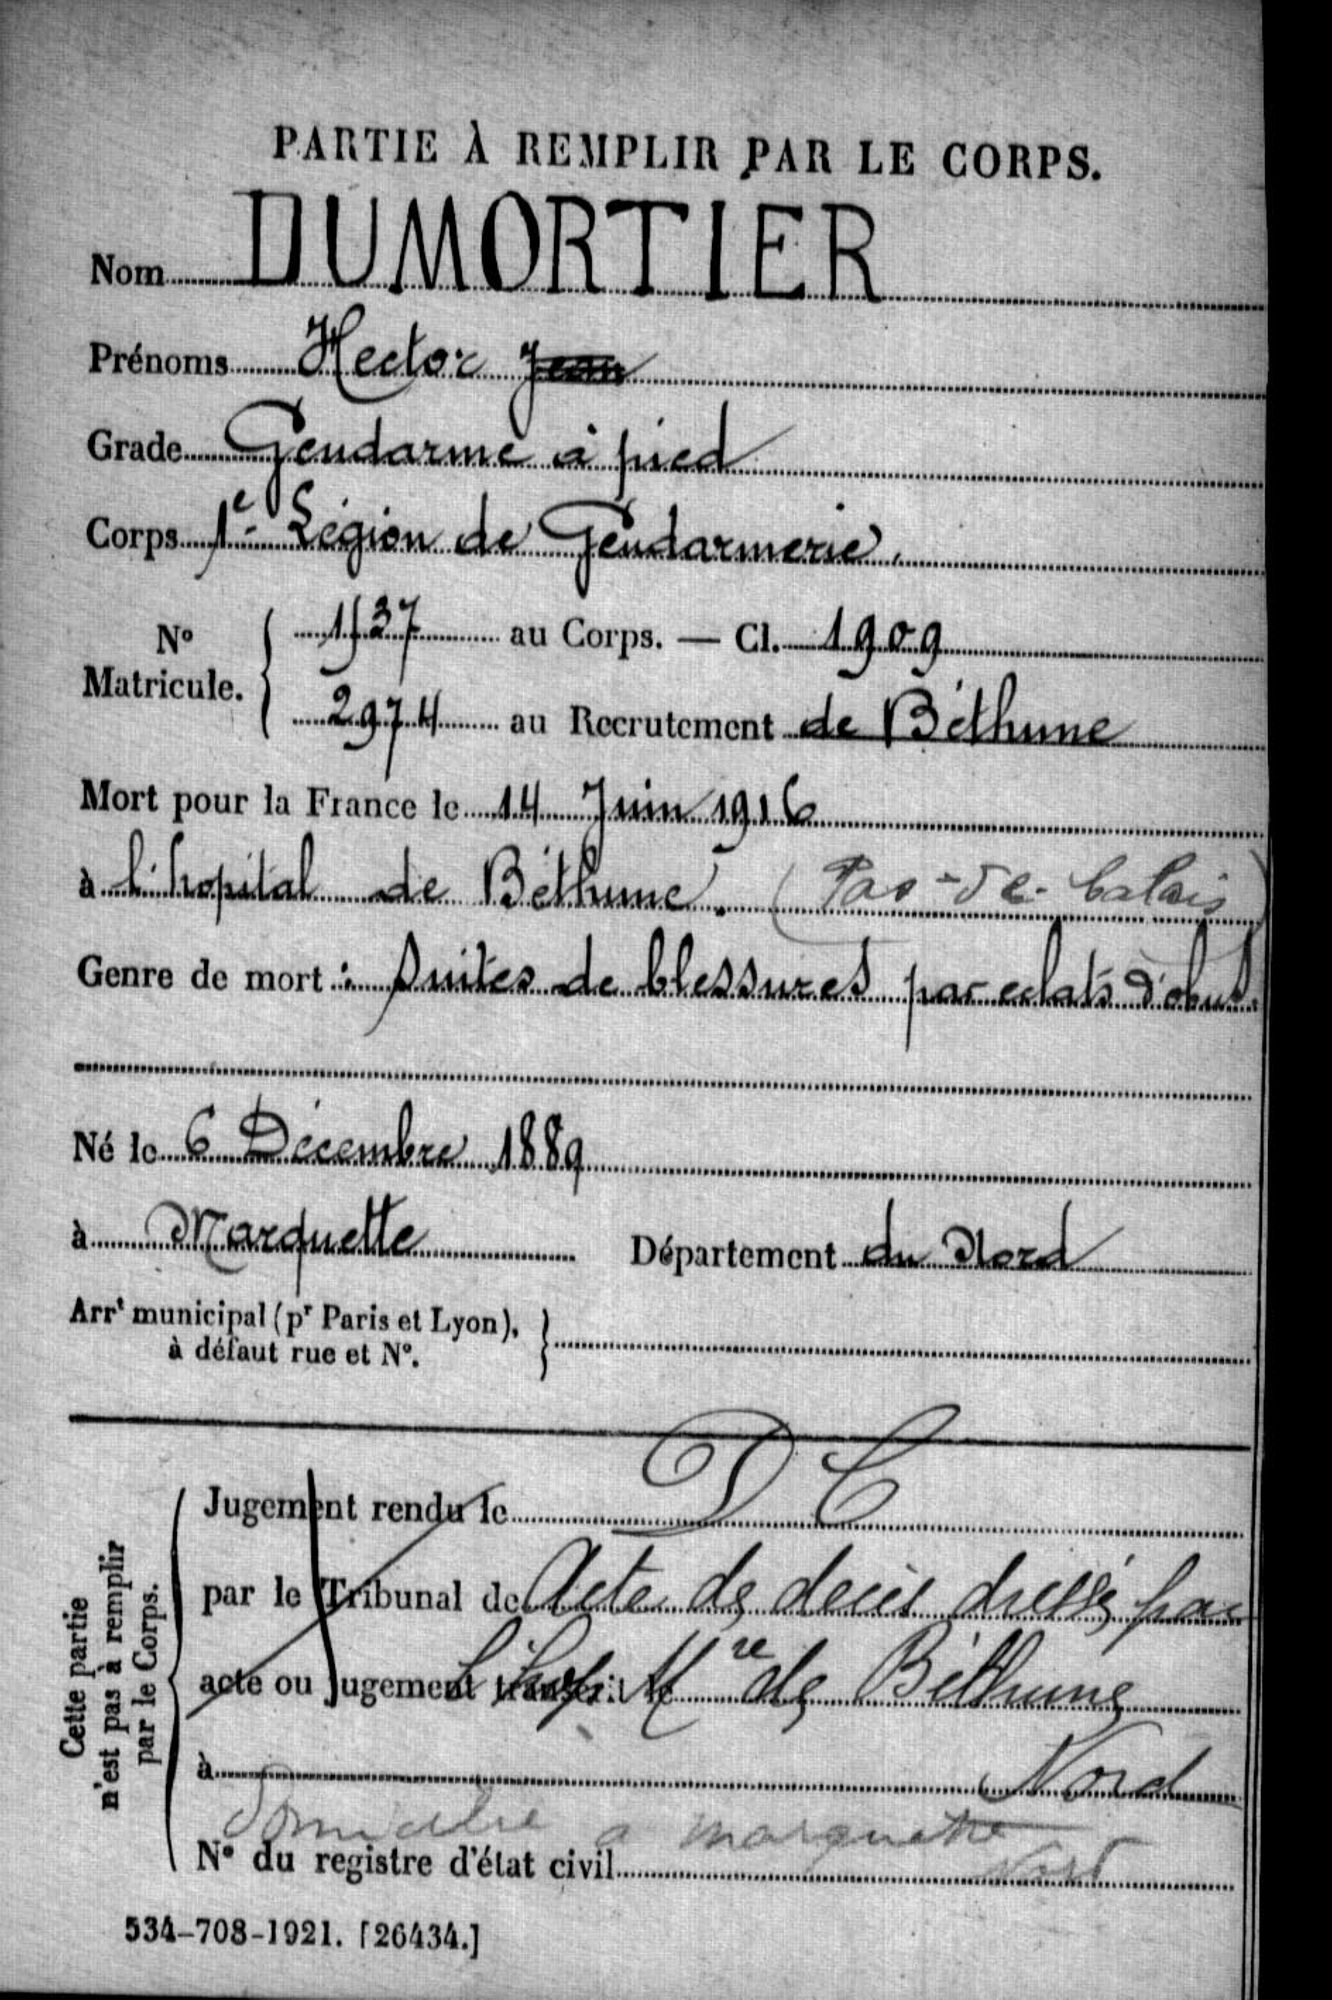 PARTIE À REMPLIR PAR LE CORPS.
Nom DUMORTIER
Prénoms Hector Jean
Grade Gendarme à pied
Corps 1e Légion de Gendarmerie.
No Matricule. 1537 au Corps. — Cl. 1909
2974 au Recrutement de Béthune
Mort pour la France le 14 Juin 1916
à l'hopital de Béthune. (Pas-de-Calais)
Genre de mort : Suites de blessures par eclats d'obus.
Né le 6 Décembre 1889
à Marquette Département du Nord
Arrt municipal (pr Paris et Lyon),
à défaut rue et No.
D C
Jugement rendu le
par le Tribunal de Acte de décès dressé par
acte ou jugement transcrit le l'hop Mre de Béthune
à Nord
Domicilié a marquette
Nord
No du registre d'état civil
Cette partie
n'est pas à remplir
par le Corps.
534-708-1921. [26434.]